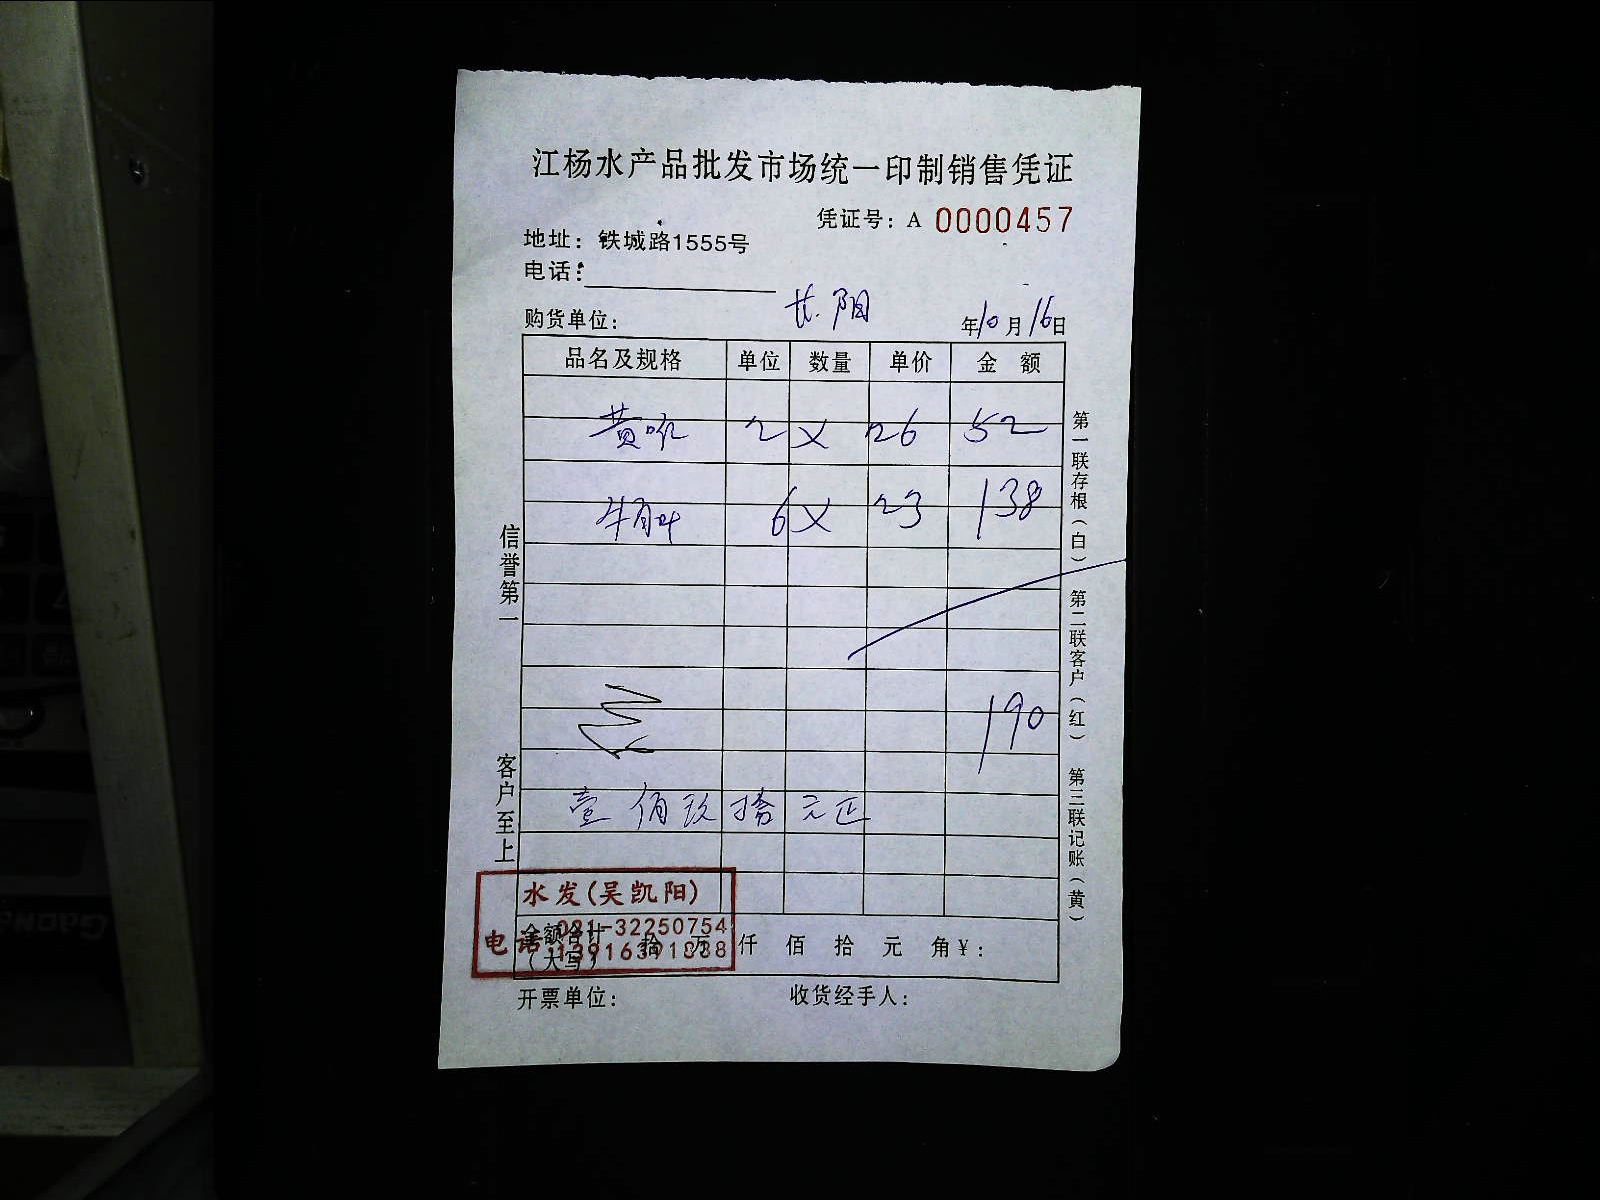 江杨水产品批发市场统一印制销售凭证
凭证号：A 0000457
地址：铁城路1555号
电话：
购货单位： 长阳 年10月16日
品名及规格 单位 数量 单价 金额
黄 2 26 52
牛 6 23 138
190
壹佰玖拾元正
水发(吴凯阳)
021-32250754
电话
金额合计
(大写) 拾 万 仟 佰 拾 元 角 ¥：
开票单位： 收货经手人：
信誉第一 客户至上
第一联存根(白) 第二联客户(红) 第三联记账(黄)